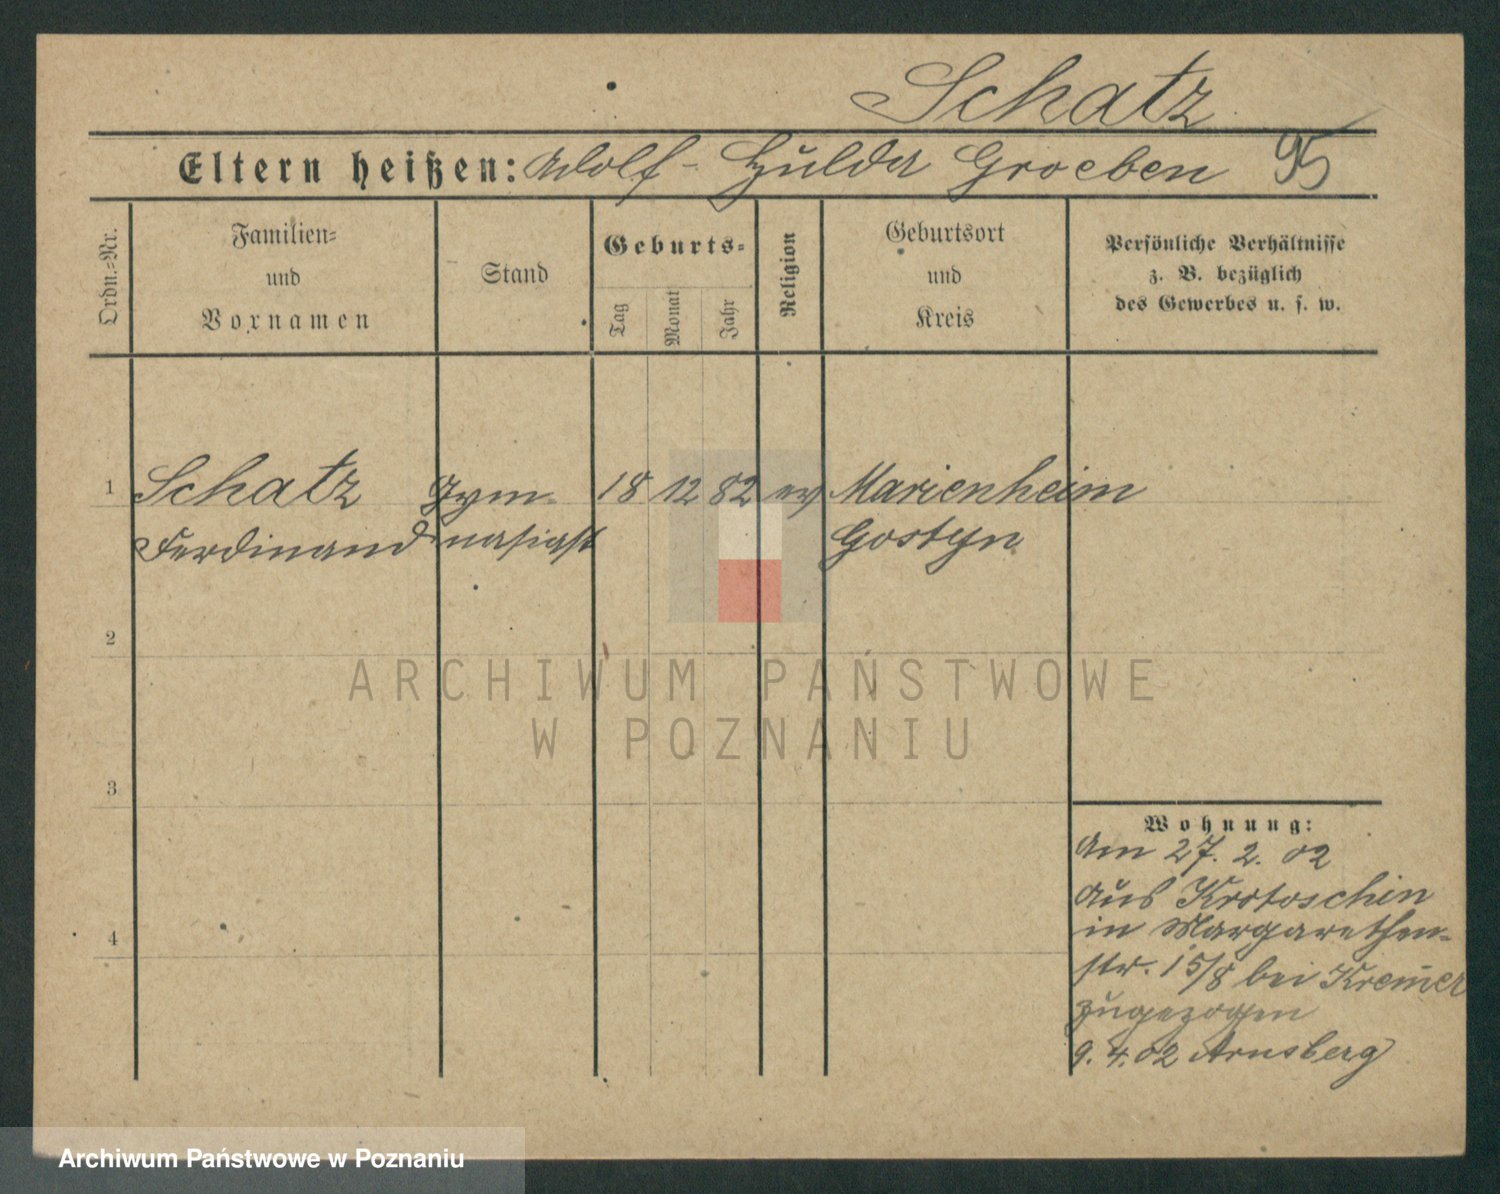 Schatz
Eltern heißen: Adolf - Hulda Groeben 95
Ordn.=Nr.
Familien=
und
Vornamen
Stand
Geburts=
Tag
Monat
Jahr
Religion
Geburtsort
und
Kreis
Persönliche Verhältnisse
z. B. bezüglich
des Gewerbes u. s. w.
1 Schatz Gym- 18 12 82 ev Marienheim
Ferdinand nasiast Gostyn
2
ARCHIWUM PAŃSTWOWE
W POZNANIU
3
Wohnung:
Am 27. 2. 02
aus Krotoschin
in Margarethen-
str. 15/8 bei Krem̄er
zugezogen
9. 4. 02 Arnsberg
4
Archiwum Państwowe w Poznaniu